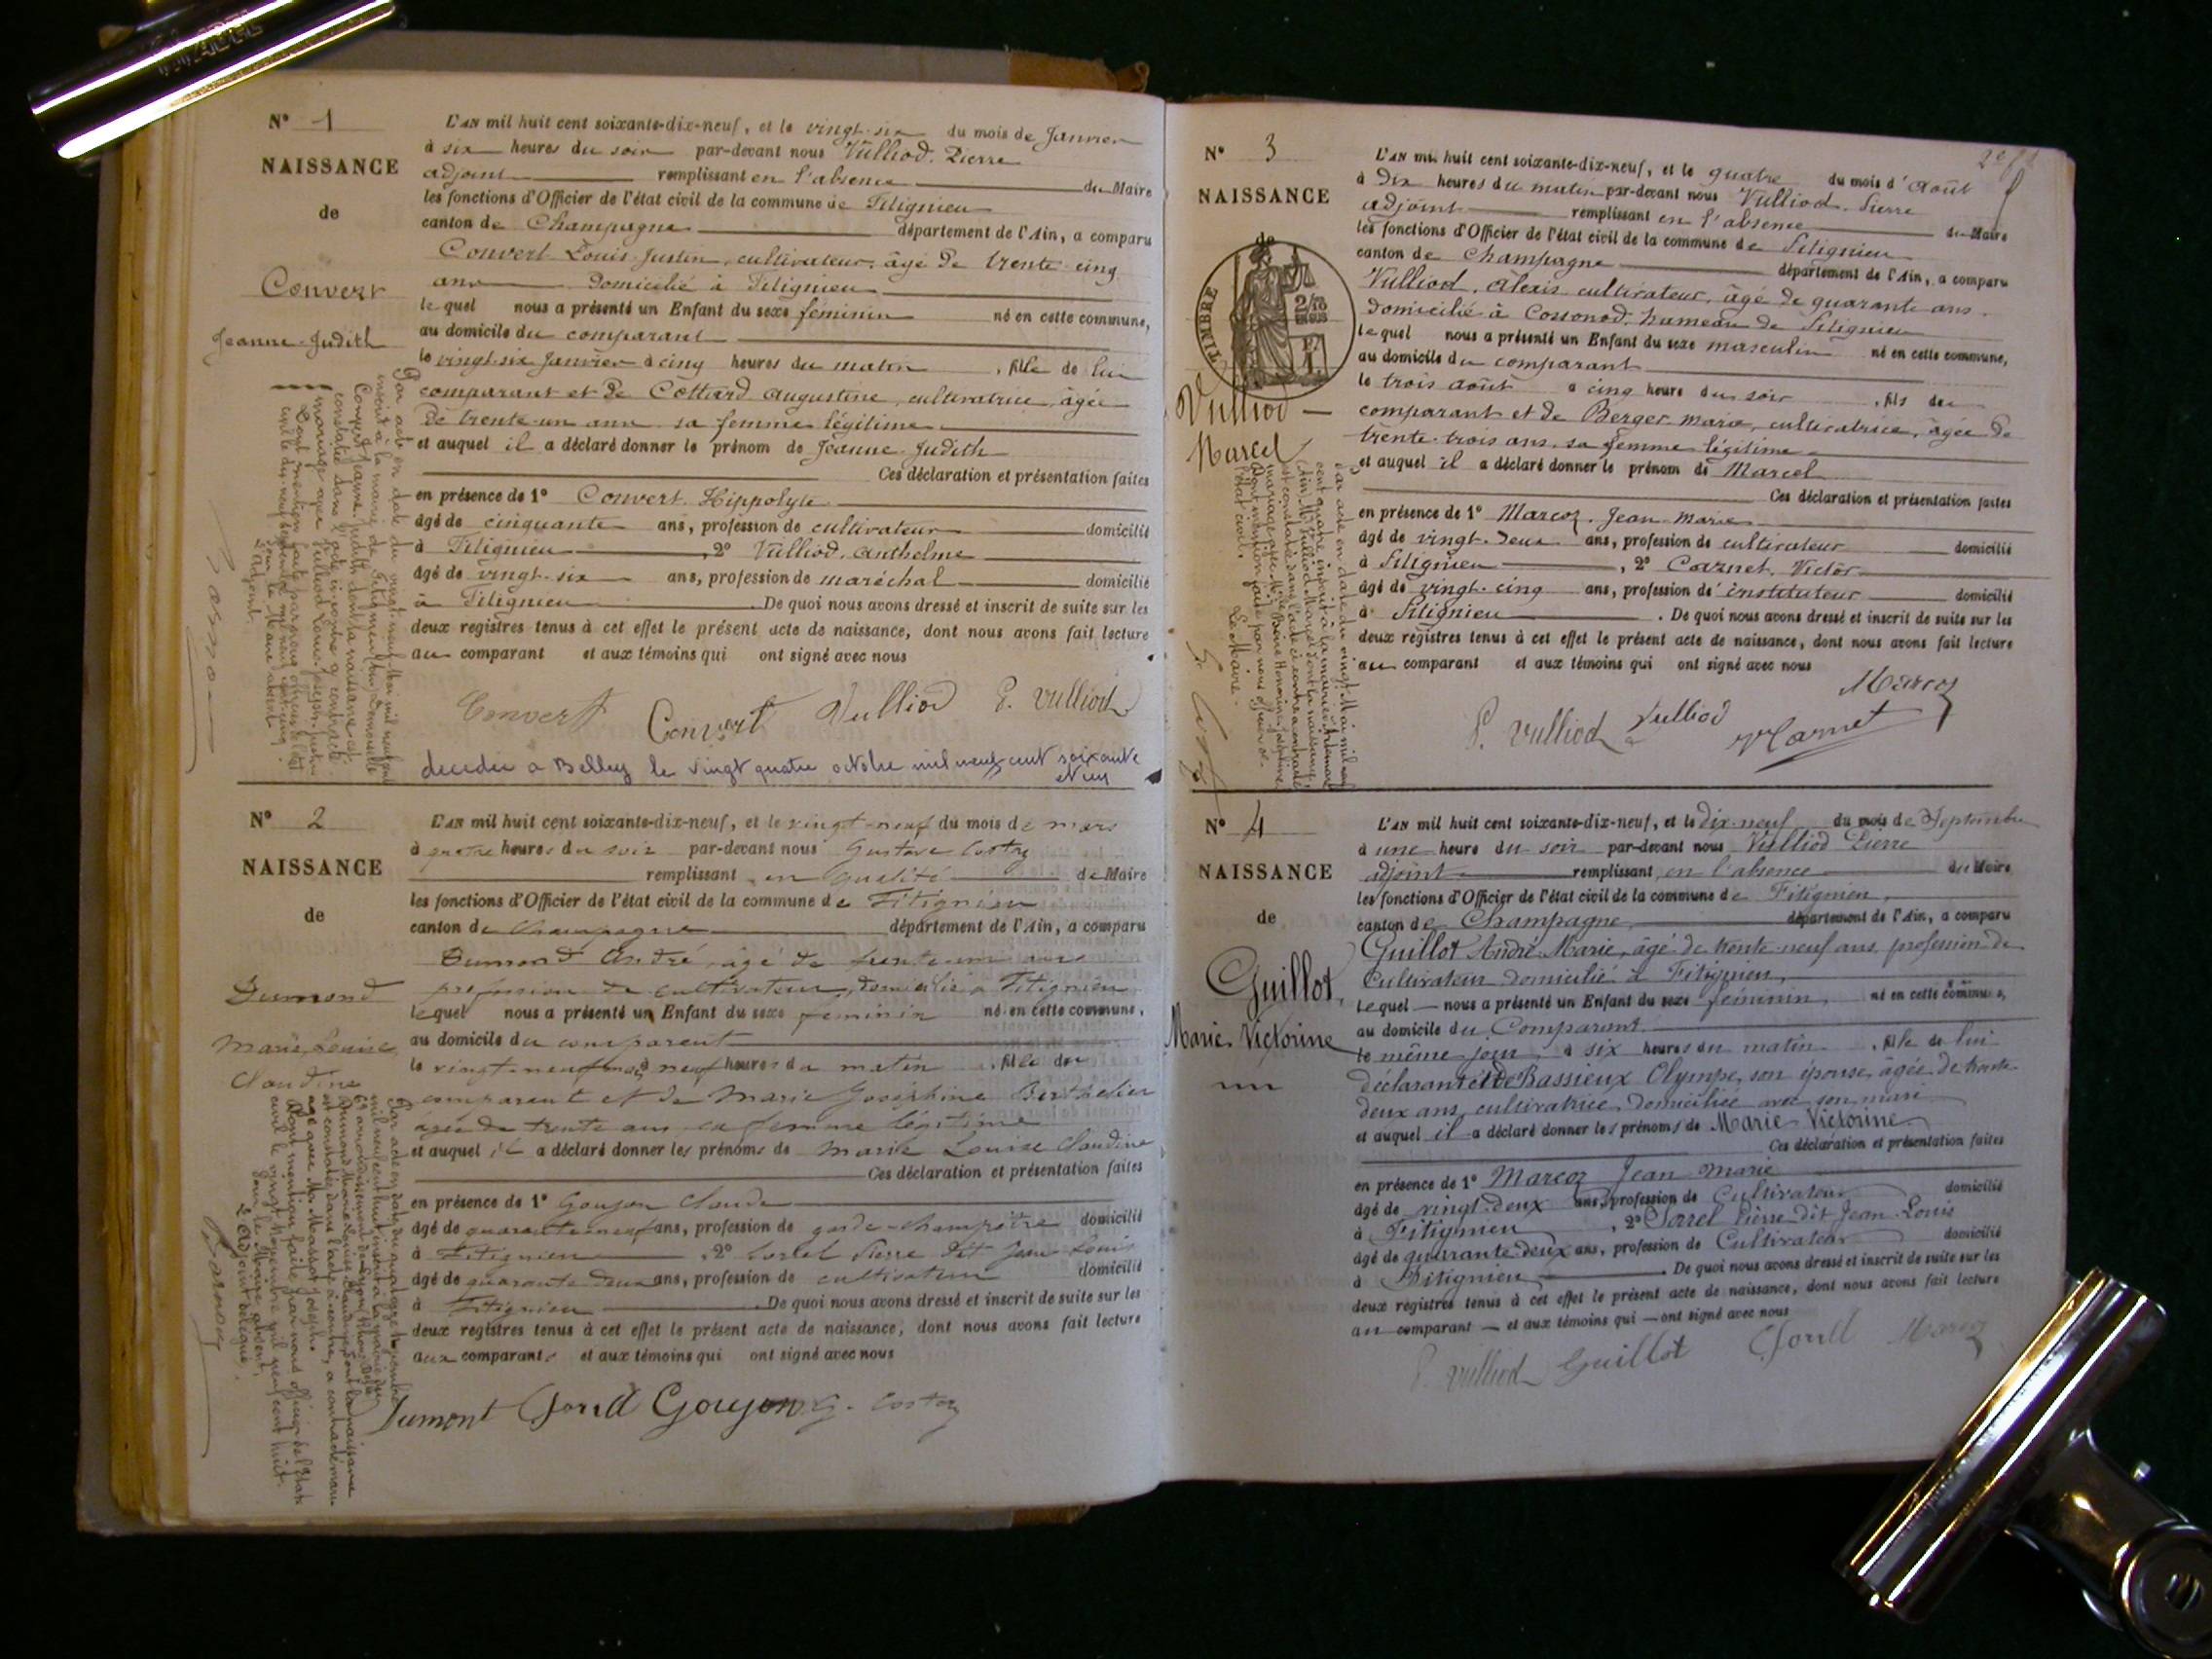 N° 1
NAISSANCE
de
Convert
Jeanne-Judith
L'AN mil huit cent soixante-dix-neuf, et le vingt-six du mois de Janvier
à six heures du soir par-devant nous Vulliod. Pierre
adjoint remplissant en l'absence du Maire
les fonctions d'Officier de l'état civil de la commune de Fitignieu
canton de Champagne département de l'Ain, a comparu
Convert Louis-Justin, cultivateur, âgé de trente-cinq
ans domicilié à Fitignieu
lequel nous a présenté un Enfant du sexe féminin né en cette commune,
au domicile du comparant
le vingt-six Janvier à cinq heures du matin, fille de lui
comparant et de Cottard Augustine, cultivatrice, âgée
de trente-un ans sa femme légitime
et auquel il a déclaré donner le prénom de Jeanne-Judith
Ces déclaration et présentation faites
en présence de 1° Convert Hippolyte
âgé de cinquante ans, profession de cultivateur domicilié
à Fitignieu, 2° Vulliod. Anthelme
âgé de vingt-six ans, profession de maréchal domicilié
à Fitignieu. De quoi nous avons dressé et inscrit de suite sur les
deux registres tenus à cet effet le présent acte de naissance, dont nous avons fait lecture
au comparant et aux témoins qui ont signé avec nous
Convert Convert Vulliod P. Vulliod
décédée à Belley le vingt quatre octobre mil neuf cent soixante
et un
N° 2
NAISSANCE
de
Dumond
Marie Louise
Claudine
L'AN mil huit cent soixante-dix-neuf, et le vingt-neuf du mois de mars
à quatre heures du soir par-devant nous Gustave Costaz
remplissant en qualité de Maire
les fonctions d'Officier de l'état civil de la commune de Fitignieu
canton de Champagne département de l'Ain, a comparu
Dumond André, âgé de trente-un ans
profession de cultivateur, domicilié à Fitignieu
lequel nous a présenté un Enfant du sexe féminin né en cette commune,
au domicile du comparant
le vingt-neuf mars à neuf heures du matin, fille du
comparant et de Marie Joséphine Berthelier
âgée de trente ans sa femme légitime
et auquel il a déclaré donner les prénoms de Marie Louise Claudine
Ces déclaration et présentation faites
en présence de 1° Goujon Claude
âgé de quarante-neuf ans, profession de garde-champêtre domicilié
à Fitignieu, 2° Sorrel Pierre dit Jean-Louis
âgé de quarante deux ans, profession de cultivateur domicilié
à Fitignieu. De quoi nous avons dressé et inscrit de suite sur les
deux registres tenus à cet effet le présent acte de naissance, dont nous avons fait lecture
aux comparants et aux témoins qui ont signé avec nous
Dumont Sorrel Goujon G. Costaz
N° 3
NAISSANCE
de
TIMBRE
Vulliod
Marcel
L'AN mil huit cent soixante-dix-neuf, et le quatre du mois d'août
à dix heures du matin par-devant nous Vulliod. Pierre
adjoint remplissant en l'absence du Maire
les fonctions d'Officier de l'état civil de la commune de Fitignieu
canton de Champagne département de l'Ain, a comparu
Vulliod. Alexis cultivateur, âgé de quarante ans.
domicilié à Cossonod. hameau de Fitignieu
lequel nous a présenté un Enfant du sexe masculin né en cette commune,
au domicile du comparant
le trois août à cinq heure du soir, fils du
comparant et de Berger Marie, cultivatrice, âgée de
trente-trois ans. sa femme légitime
et auquel il a déclaré donner le prénom de Marcel
Ces déclaration et présentation faites
en présence de 1° Marcoz. Jean-Marie
âgé de vingt-deux ans, profession de cultivateur domicilié
à Fitignieu, 2° Carnet. Victor
âgé de vingt-cinq ans, profession d'instituteur domicilié
à Fitignieu. De quoi nous avons dressé et inscrit de suite sur les
deux registres tenus à cet effet le présent acte de naissance, dont nous avons fait lecture
au comparant et aux témoins qui ont signé avec nous
Marcoz
P. Vulliod Vulliod V Carnet
N° 4
NAISSANCE
de
Guillot,
Marie Victorine
L'AN mil huit cent soixante-dix-neuf, et le dix-neuf du mois de Septembre
à une heure du soir par-devant nous Vulliod Pierre
adjoint remplissant en l'absence du Maire
les fonctions d'Officier de l'état civil de la commune de Fitignieu,
canton de Champagne département de l'Ain, a comparu
Guillot André-Marie, âgé de trente-neuf ans, profession de
Cultivateur domicilié à Fitignieu,
lequel nous a présenté un Enfant du sexe féminin, né en cette commune,
au domicile du Comparant
le même jour, à six heures du matin, fille de lui
déclarant et de Bassieux Olympe, son épouse, âgée de trente-
deux ans, cultivatrice, domiciliée avec son mari
et auquel il a déclaré donner les prénoms de Marie-Victorine
Ces déclaration et présentation faites
en présence de 1° Marcoz Jean Marie
âgé de vingt-deux ans, profession de Cultivateur domicilié
à Fitignieu, 2° Sorrel Pierre dit Jean-Louis
âgé de quarante-deux ans, profession de Cultivateur domicilié
à Fitignieu. De quoi nous avons dressé et inscrit de suite sur les
deux registres tenus à cet effet le présent acte de naissance, dont nous avons fait lecture
au comparant et aux témoins qui ont signé avec nous
P. Vulliod Guillot Sorrel Marcoz